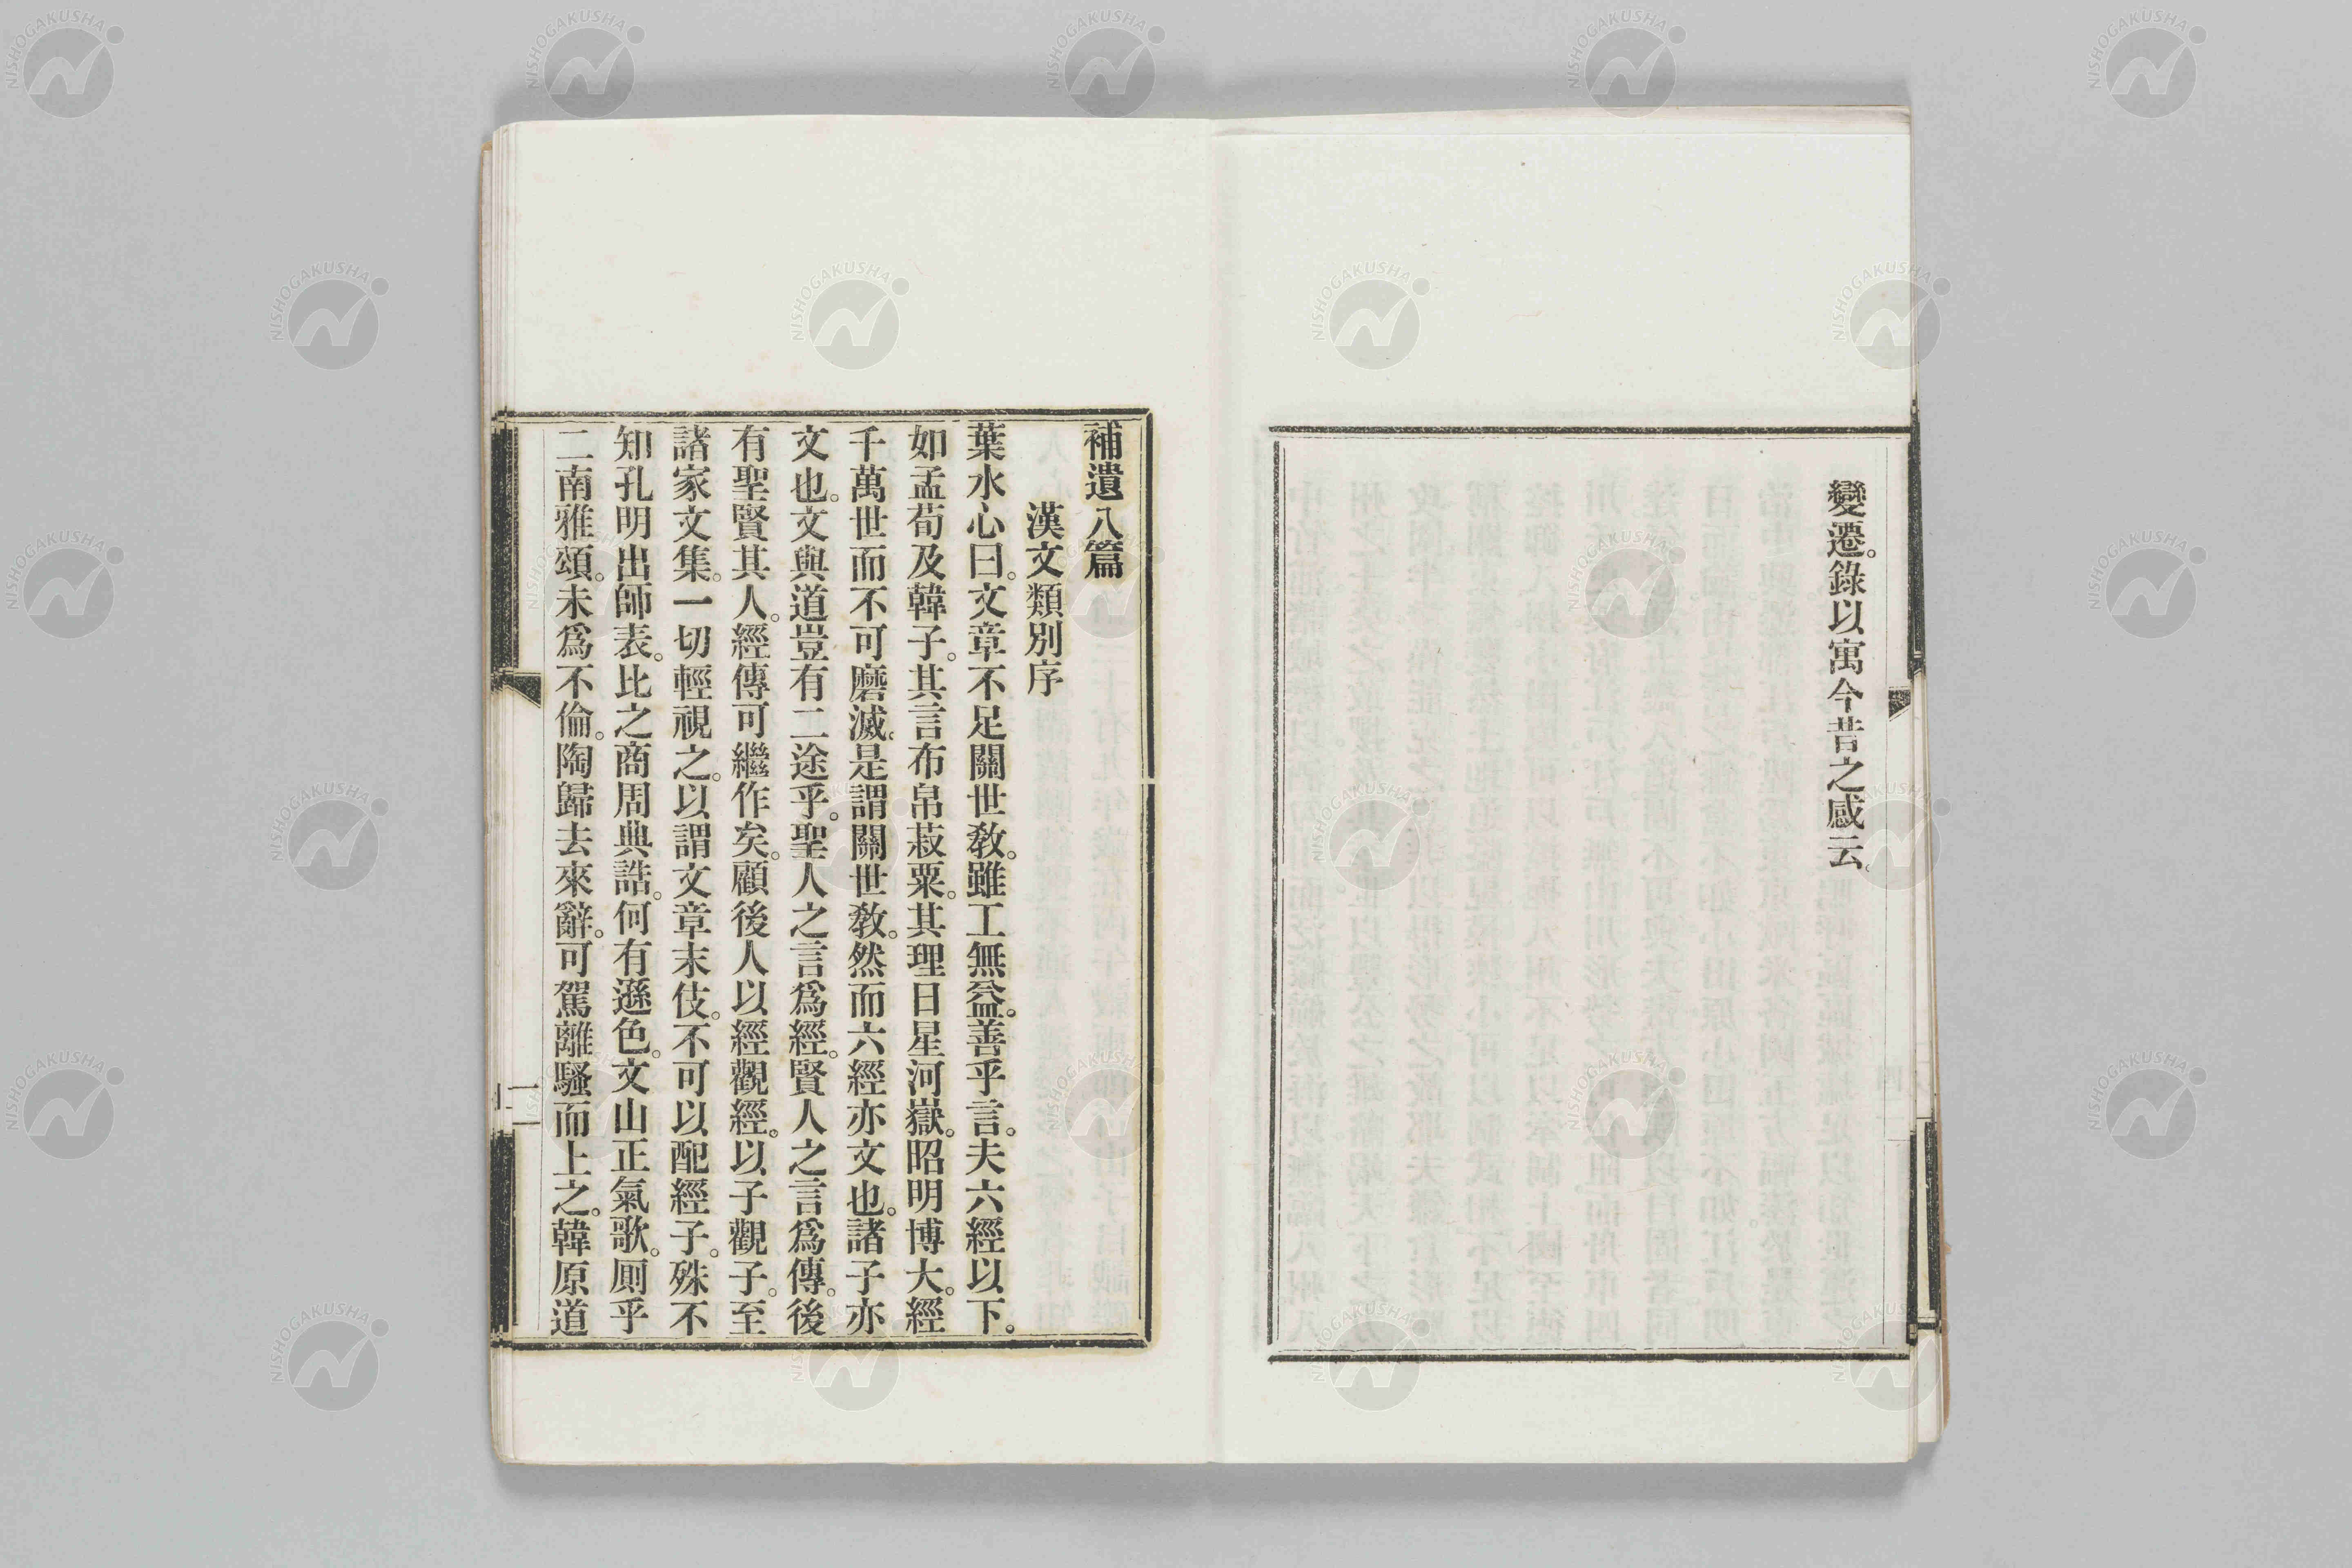 變遷。錄以寓今昔之感云。
補遺八篇
漢文類別序
葉水心曰。文章不足關世敎。雖工無益。善乎言。夫六經以下。
如孟荀及韓子。其言布帛菽粟。其理日星河嶽。昭明博大。經
千萬世而不可磨滅。是謂關世敎。然而六經亦文也。諸子亦
文也。文與道豈有二途乎。聖人之言爲經。賢人之言爲傳。後
有聖賢其人。經傳可繼作矣。顧後人以經觀經。以子觀子。至
諸家文集。一切輕視之。以謂文章末伎。不可以配經子。殊不
知孔明出師表。比之商周典誥。何有遜色。文山正氣歌。厠乎
二南雅頌。未爲不倫。陶歸去來辭。可駕離騷而上之。韓原道
NISHOGAKUSHA